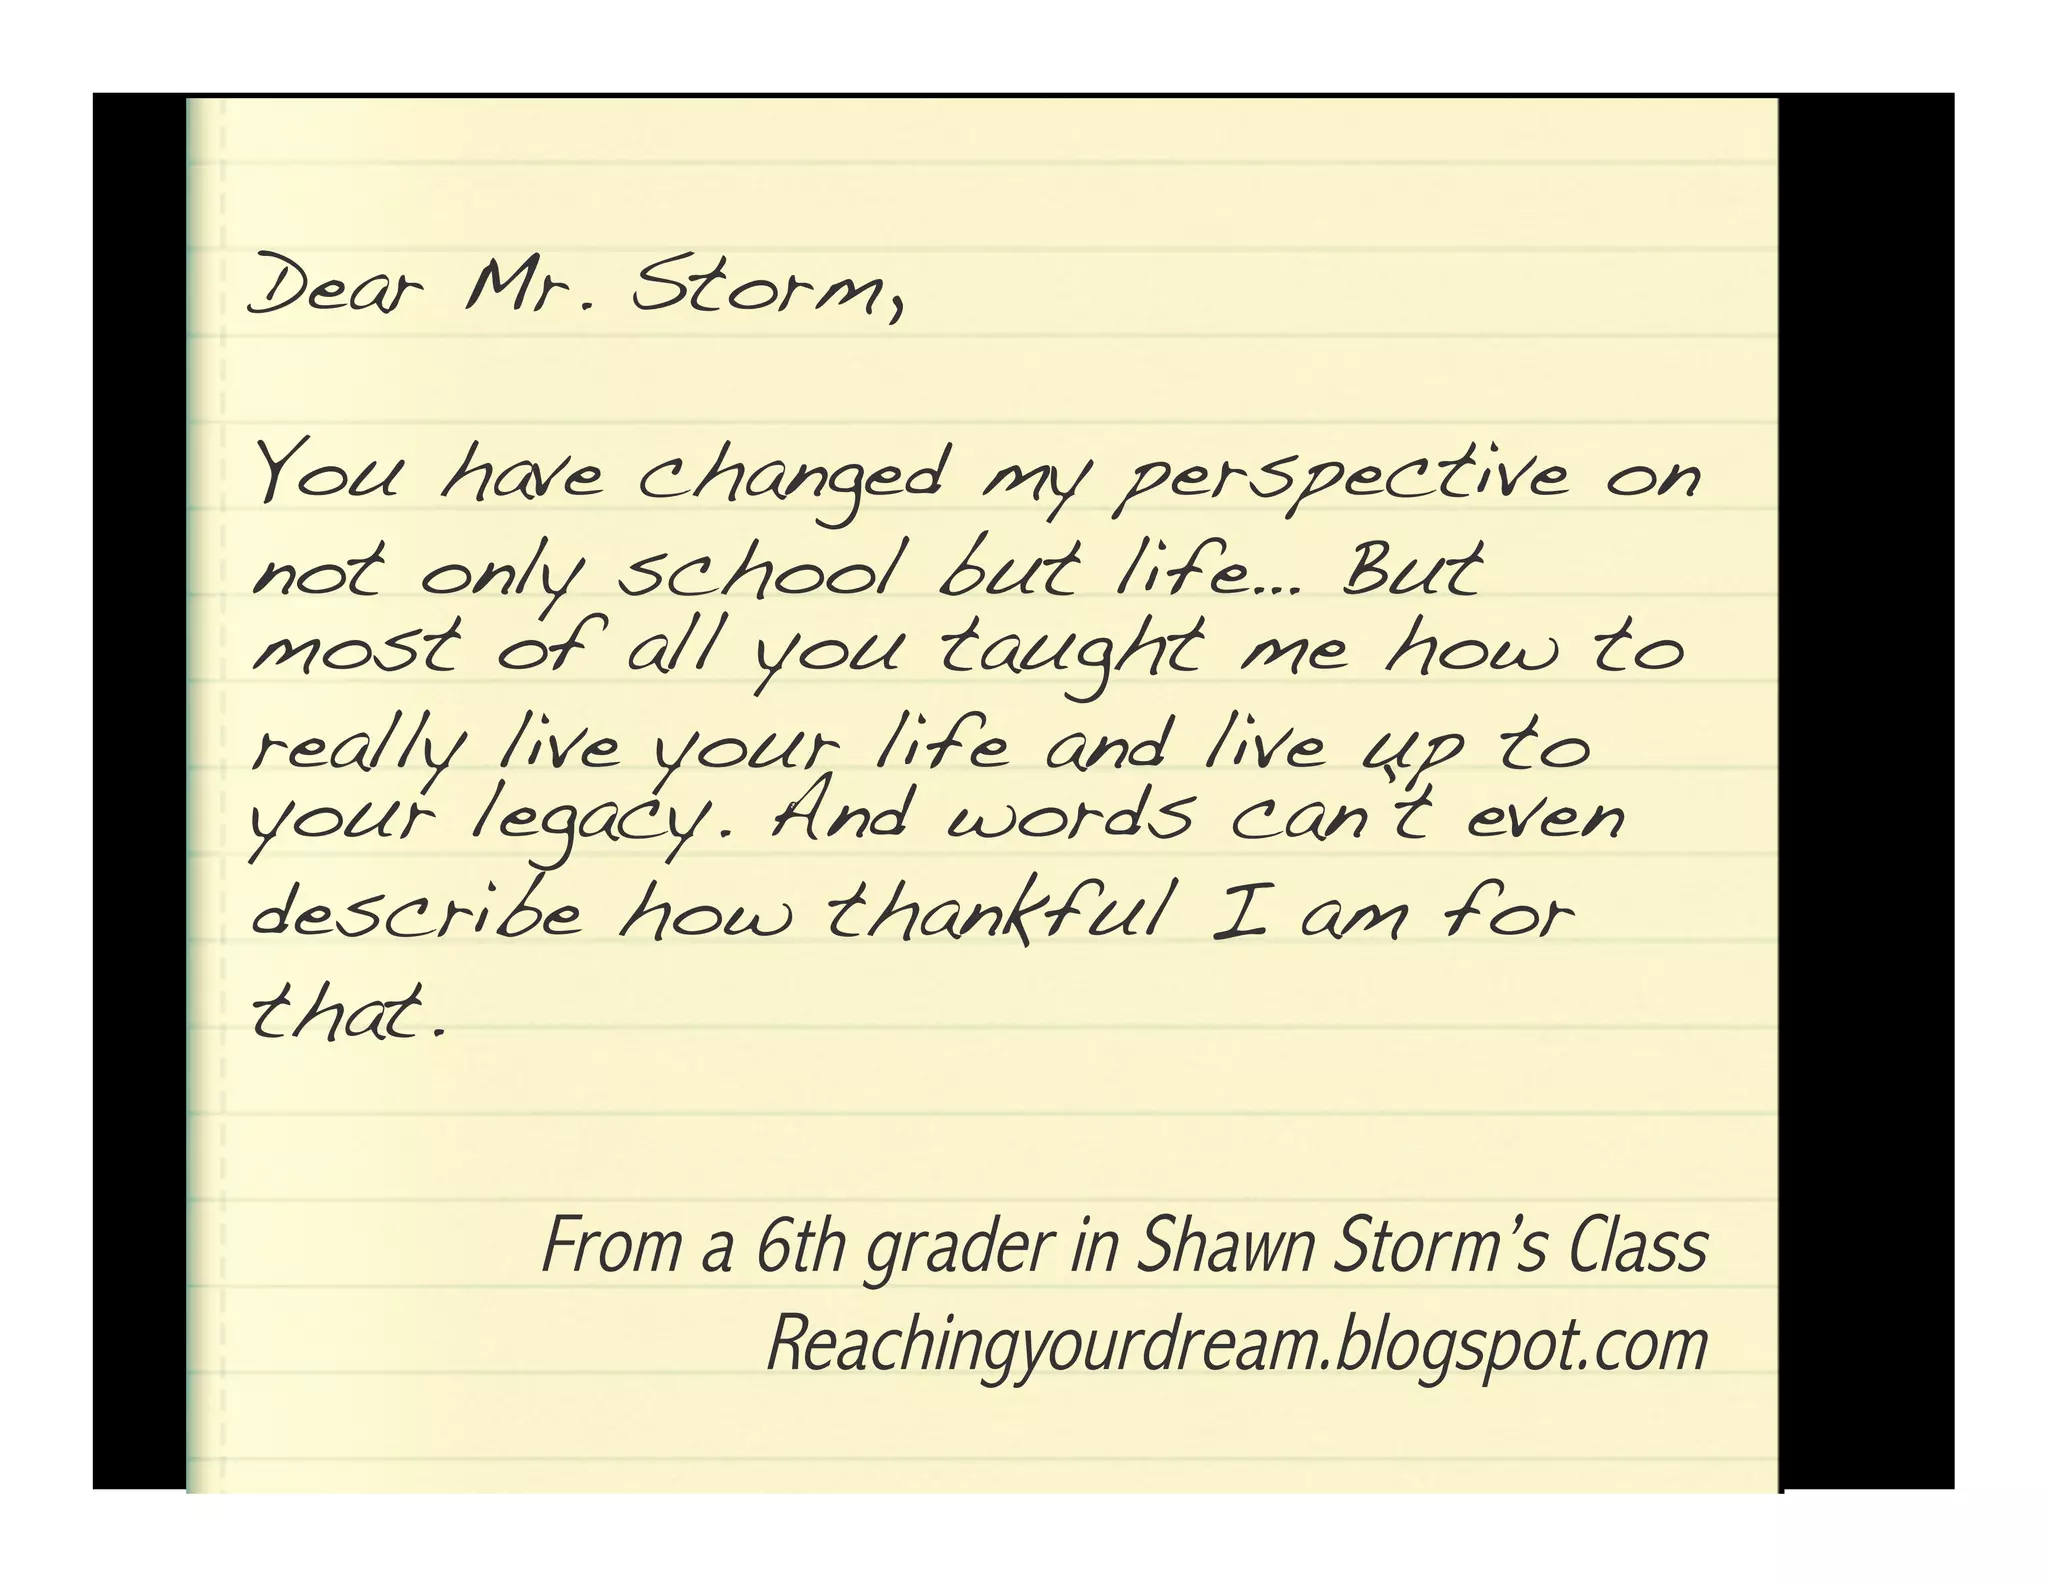 Dear Mr. Storm,
You have changed my perspective on
not only school but life... But
most of all you taught me how to
really live your life and live up to
your legacy. And words can't even
describe how thankful I am for
that.
From a 6th grader in Shawn Storm’s Class
Reachingyourdream.blogspot.com